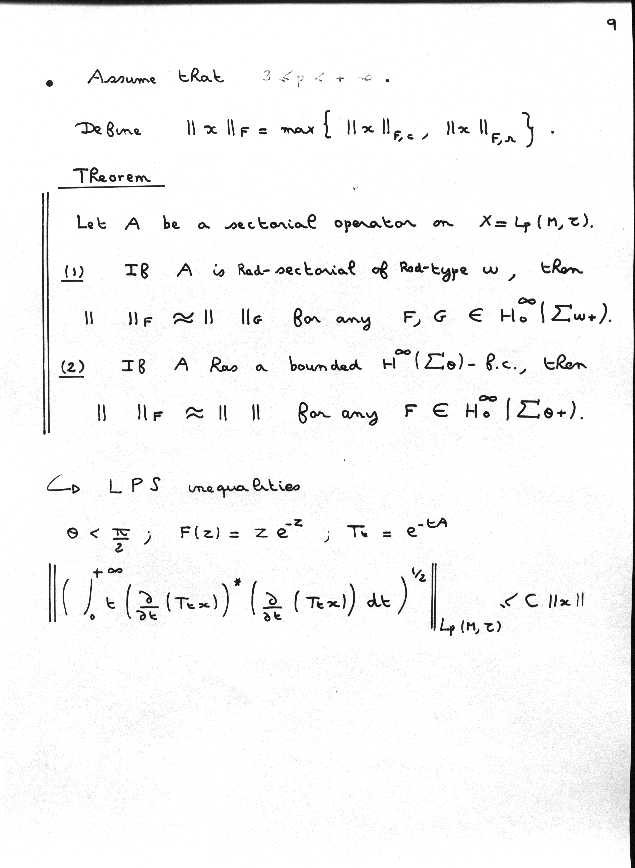 9
• Assume that 3 ≤ p < + ∞ .
Define ‖x‖_F = max { ‖x‖_{F,c} , ‖x‖_{F,r} } .
Theorem
Let A be a sectorial operator on X = Lp(M, τ).
(1) If A is Rad-sectorial of Rad-type ω, then
‖ ‖_F ≈ ‖ ‖_G for any F, G ∈ H₀^∞(Σω+).
(2) If A has a bounded H^∞(Σθ)-f.c., then
‖ ‖_F ≈ ‖ ‖ for any F ∈ H₀^∞(Σθ+).
↪ LPS inequalities
θ < π/2 ; F(z) = z e^{-z} ; Tt = e^{-tA}
‖ ( ∫_0^{+∞} t ( ∂/∂t (Tt x) )^* ( ∂/∂t (Tt x) ) dt )^{1/2} ‖_{Lp(M, τ)} ≤ C ‖x‖